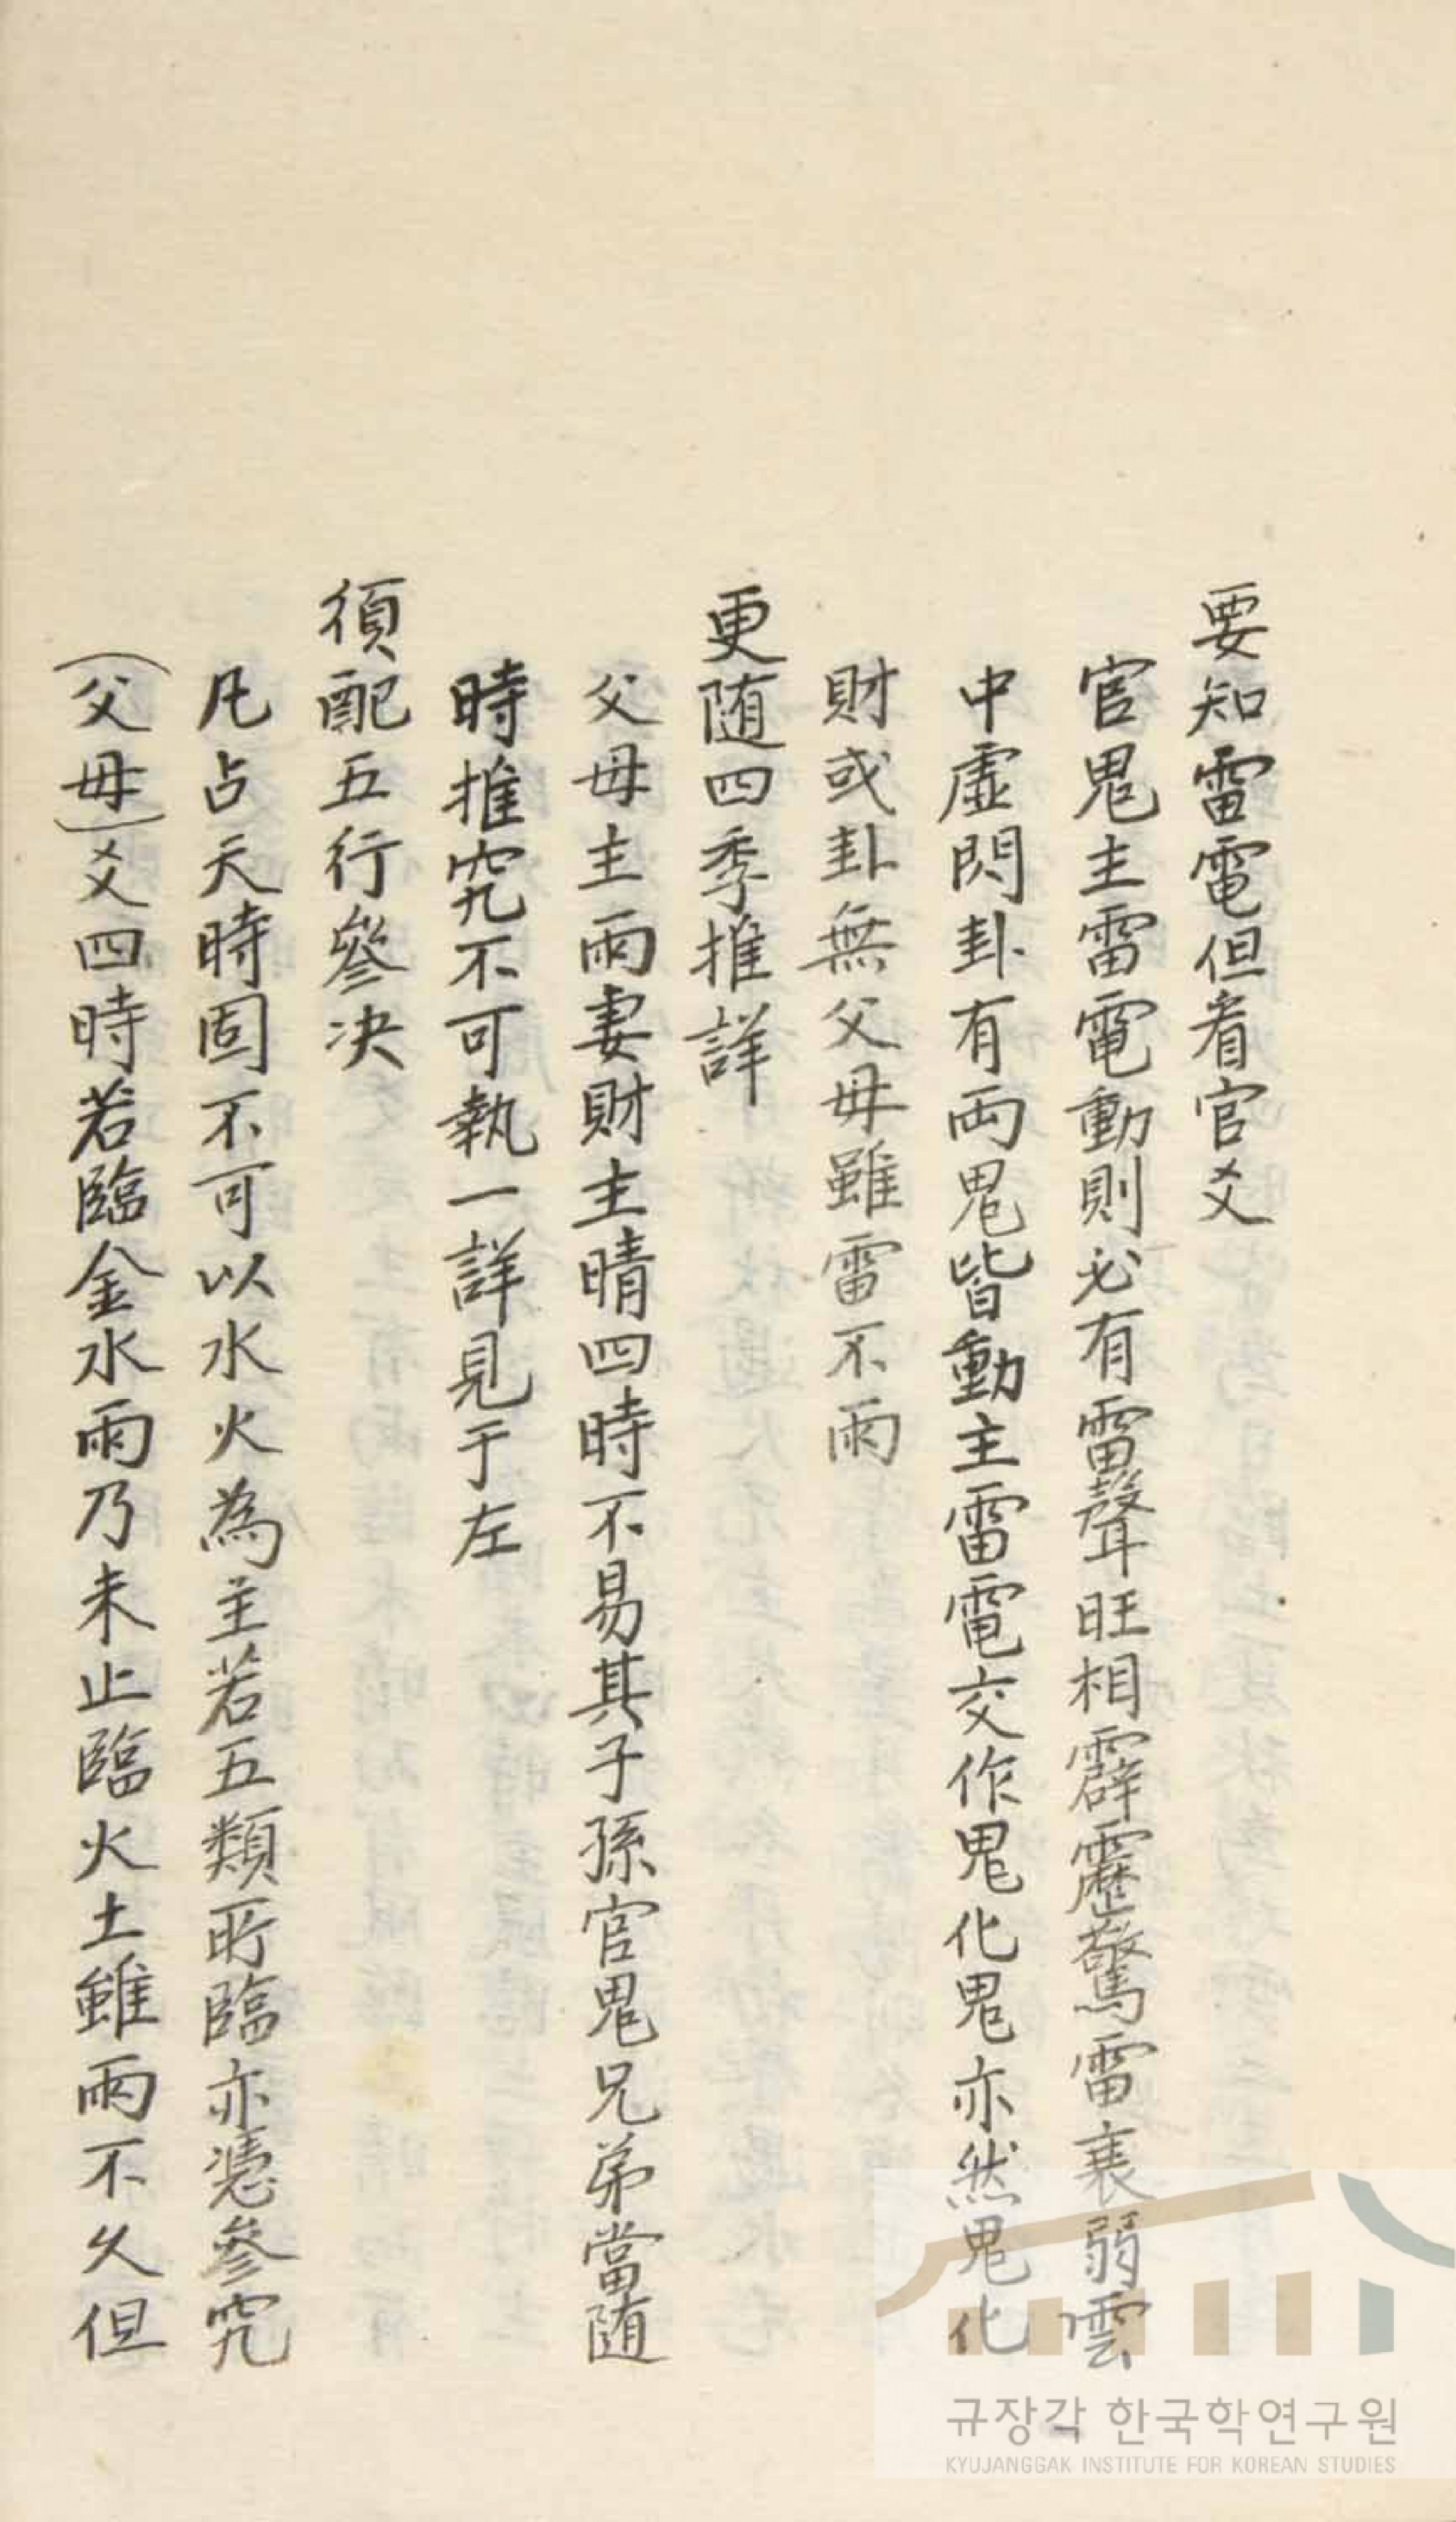 要知雷電但看官爻
官鬼主雷電動則必有雷聲旺相霹靂驚雷衰弱雲
中虛閃卦有両鬼皆動主雷電交作鬼化鬼亦然鬼化
財或卦無父母雖雷不雨
更随四季推詳
父母主雨妻財主晴四時不易其子孫官鬼兄弟當随
時推究不可執一詳見于左
須配五行參决
凡占天時固不可以水火為主若五類所臨亦憑參究
(父母)爻四時若臨金水雨乃未止臨火土雖雨不久但
규장각 한국학연구원
KYUJANGGAK INSTITUTE FOR KOREAN STUDIES